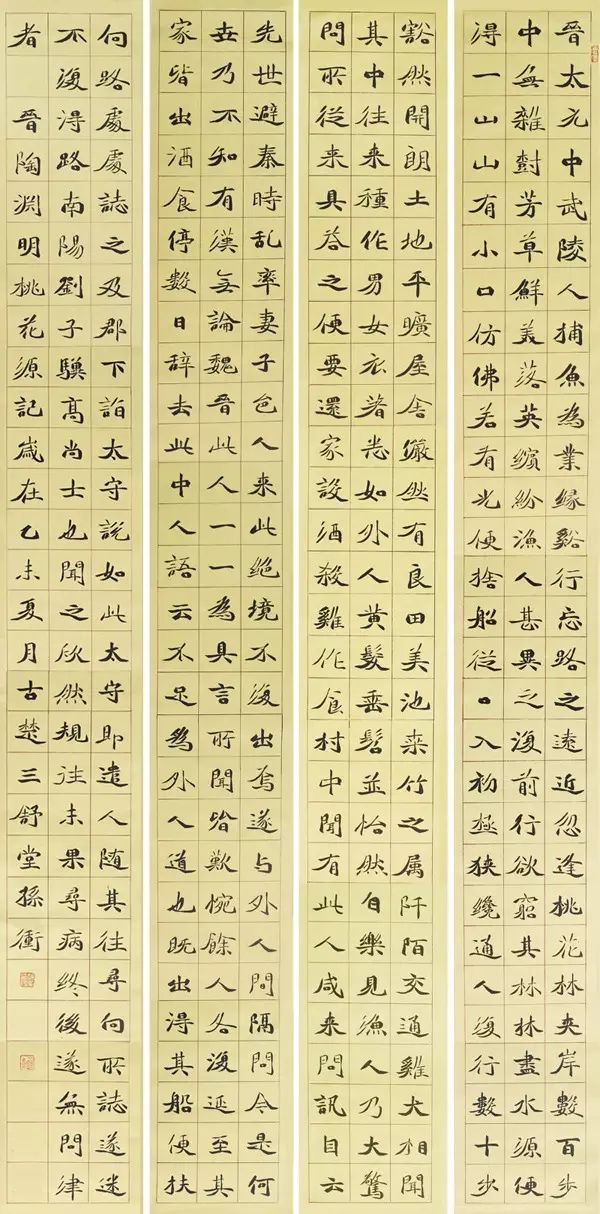 晉太元中武陵人捕魚為業緣谿行忘路之遠近忽逢桃花林夾岸數百步
中無雜樹芳草鮮美落英繽紛漁人甚異之復前行欲窮其林林盡水源便
得一山山有小口仿佛若有光便捨船從口入初極狹纔通人復行數十步
豁然開朗土地平曠屋舍儼然有良田美池桒竹之属阡陌交通雞犬相聞
其中往来種作男女衣著悉如外人黄髮垂髫並怡然自樂見漁人乃大驚
問所從来具答之便要還家設酒殺雞作食村中聞有此人咸来問訊自云
先世避秦時乱率妻子邑人来此絕境不復出焉遂与外人間隔問今是何
世乃不知有漢無論魏晉此人一一為具言所聞皆歎惋餘人各復延至其
家皆出酒食停數日辞去此中人語云不足為外人道也既出得其船便扶
向路處處誌之及郡下詣太守説如此太守即遣人随其往尋向所誌遂迷
不復得路南陽劉子驥髙尚士也聞之欣然規往未果尋病終後遂無問津
者 晉陶淵明桃花源記歲在乙未夏月古楚三舒堂孫衝